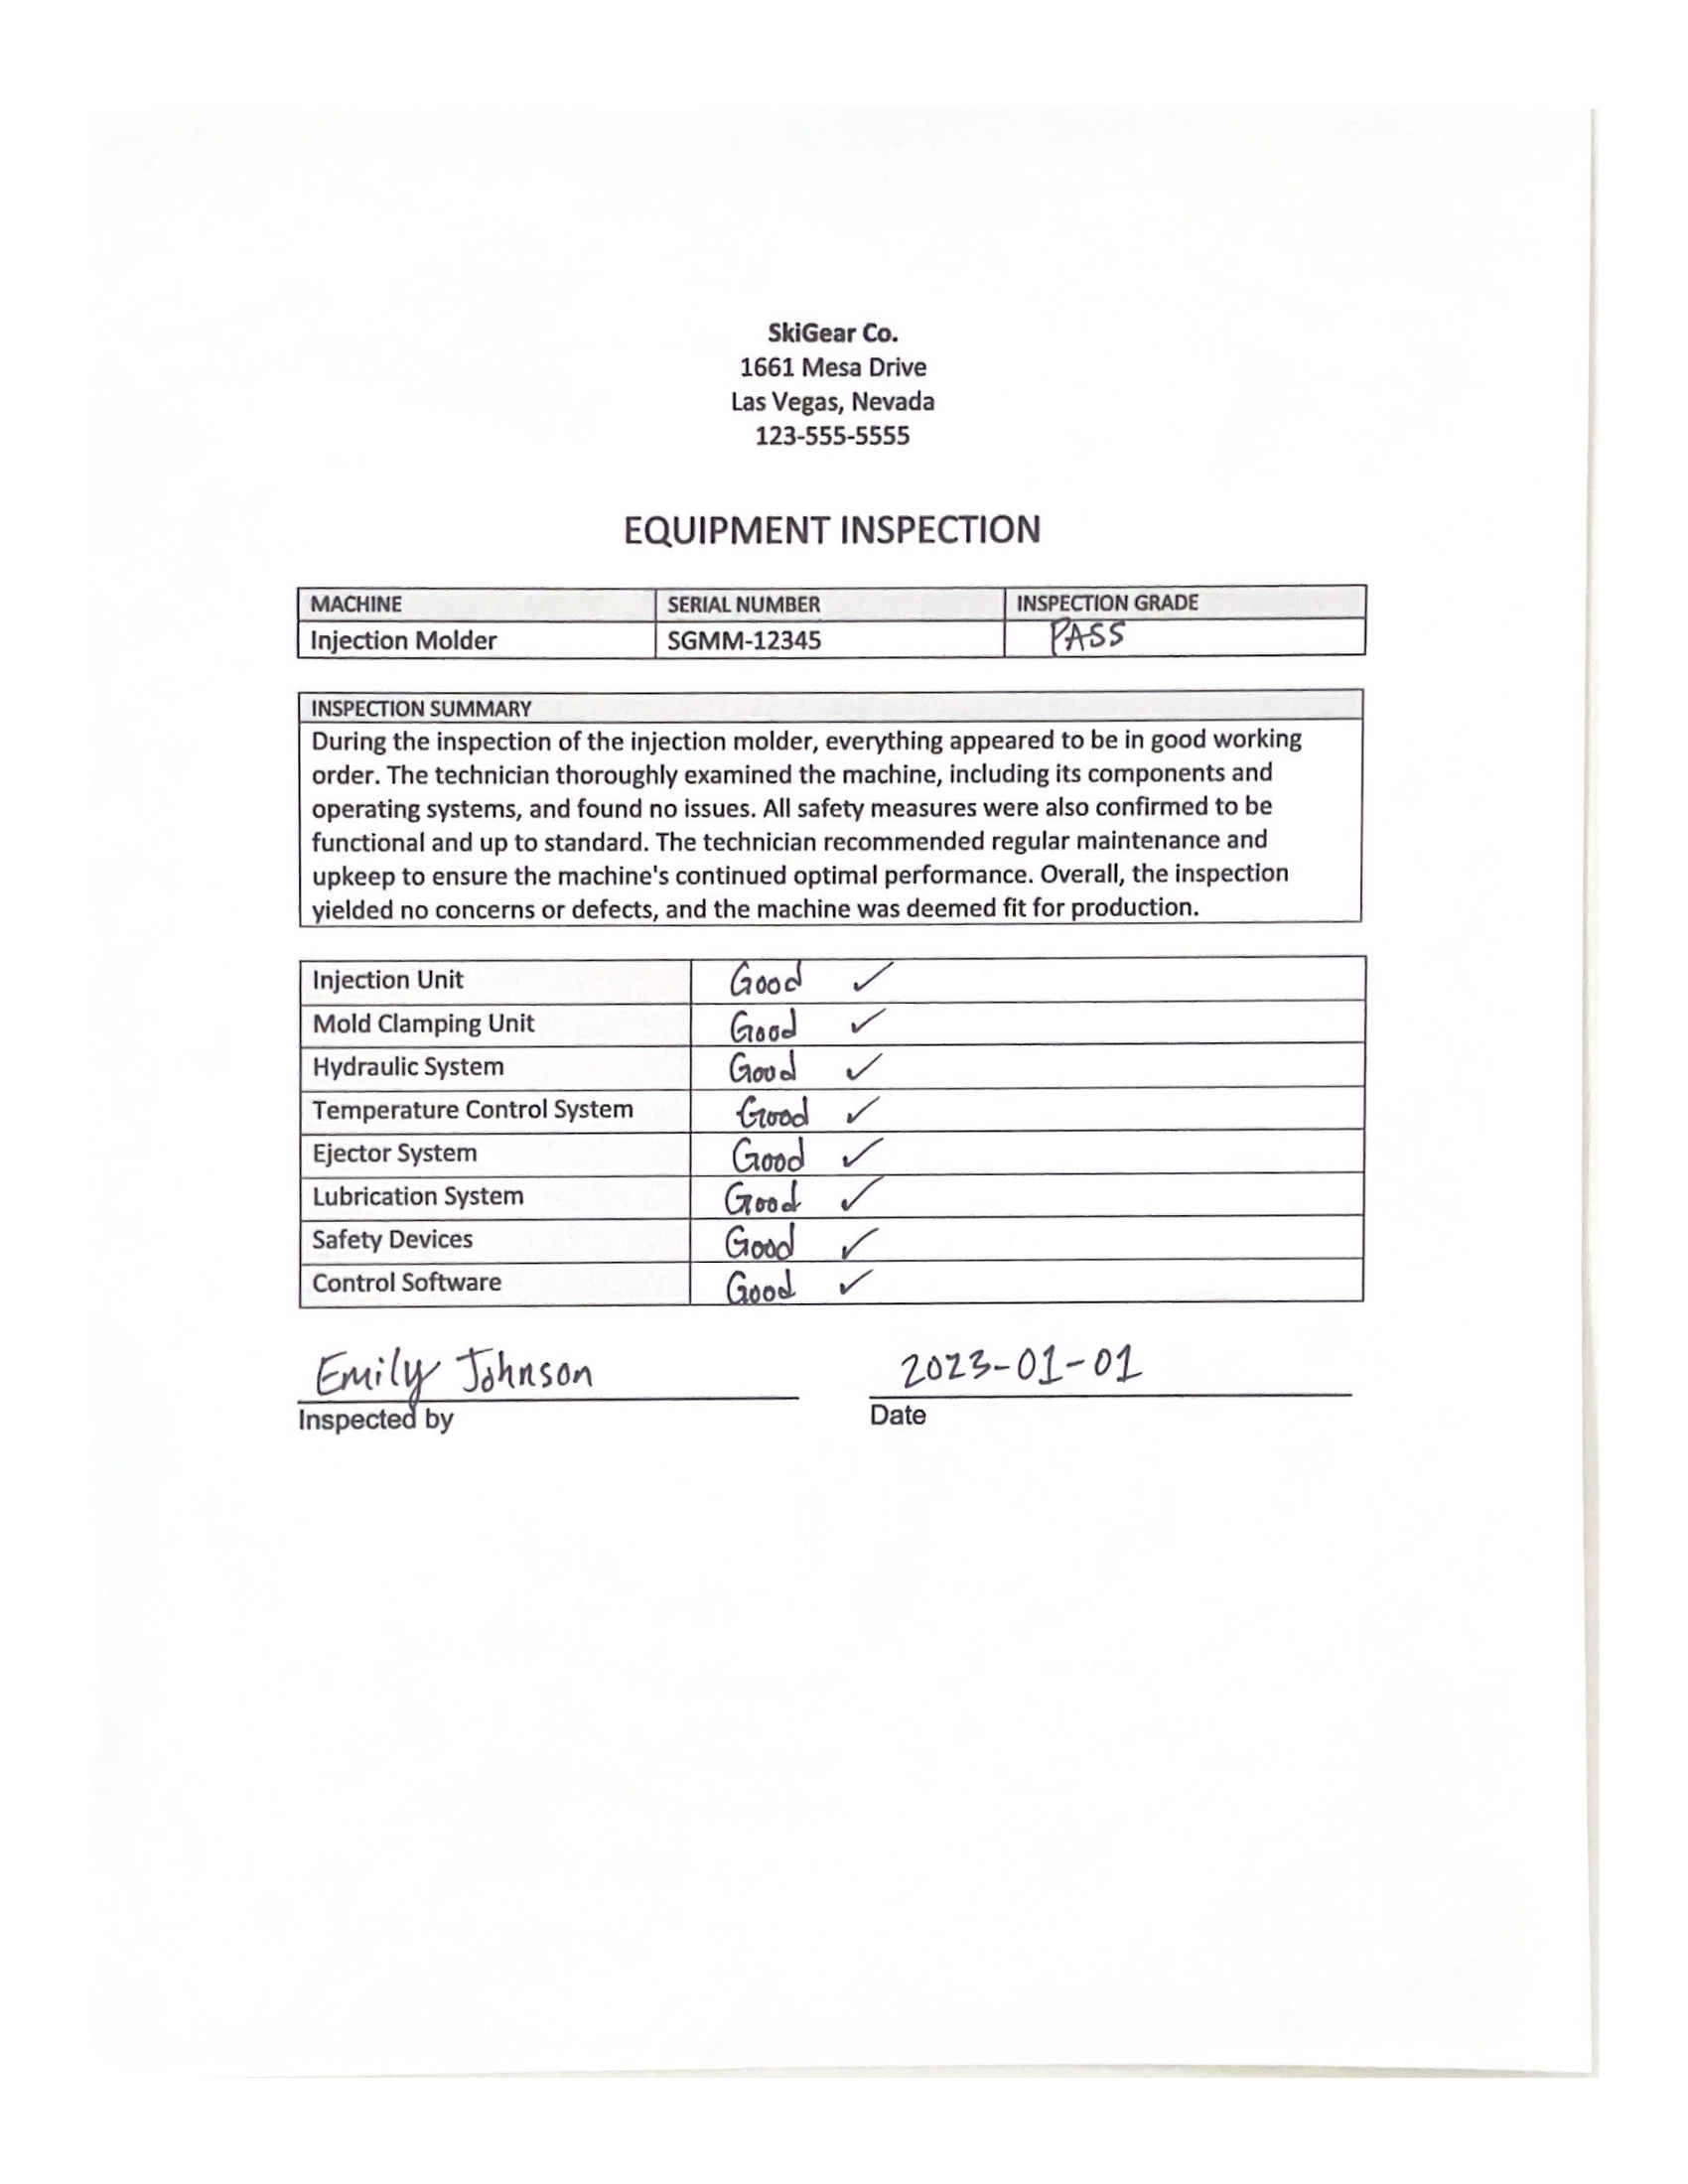 SkiGear Co.
1661 Mesa Drive
Las Vegas, Nevada
123-555-5555
EQUIPMENT INSPECTION
MACHINE SERIAL NUMBER INSPECTION GRADE
Injection Molder SGMM-12345 PASS
INSPECTION SUMMARY
During the inspection of the injection molder, everything appeared to be in good working
order. The technician thoroughly examined the machine, including its components and
operating systems, and found no issues. All safety measures were also confirmed to be
functional and up to standard. The technician recommended regular maintenance and
upkeep to ensure the machine's continued optimal performance. Overall, the inspection
yielded no concerns or defects, and the machine was deemed fit for production.
Injection Unit Good ✓
Mold Clamping Unit Good ✓
Hydraulic System Good ✓
Temperature Control System Good ✓
Ejector System Good ✓
Lubrication System Good ✓
Safety Devices Good ✓
Control Software Good ✓
Emily Johnson 2023-01-01
Inspected by Date